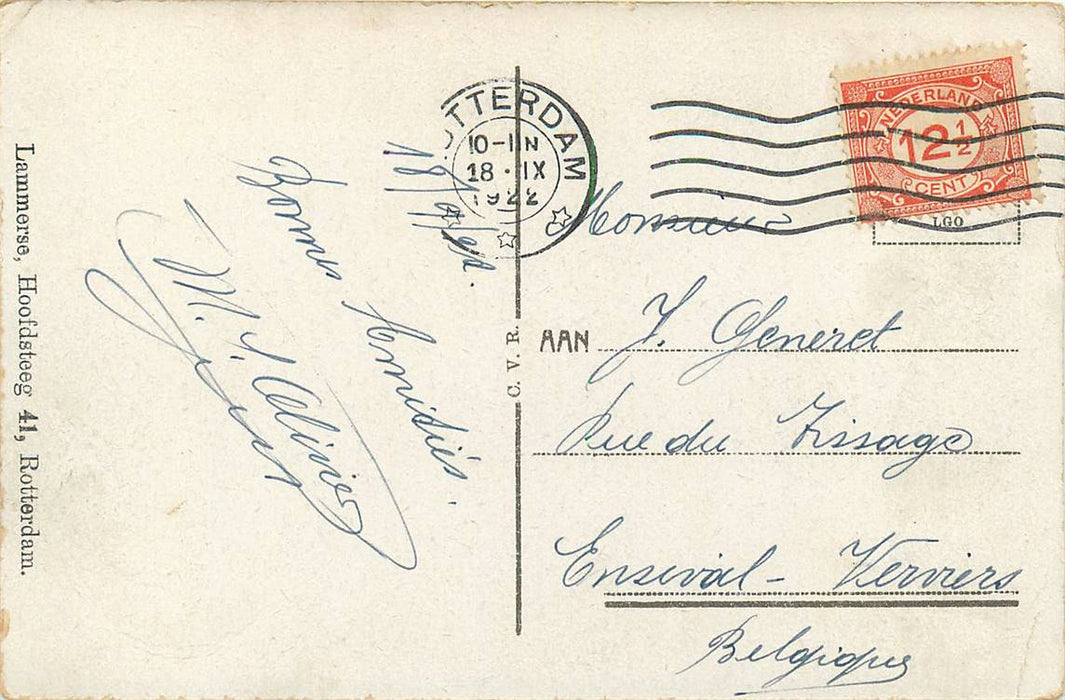 Lammerse, Hoofdsteeg 41, Rotterdam.
18/9/22.
Bonnes Amitiés.
M. J. Olivier
C. V. R.
OTTERDAM
10-11N
18·IX
1922
NEDERLAND
12½
CENT
LGO
Monsieur
AAN J. Generet
Rue du Tissage
Ensival - Verviers
Belgique